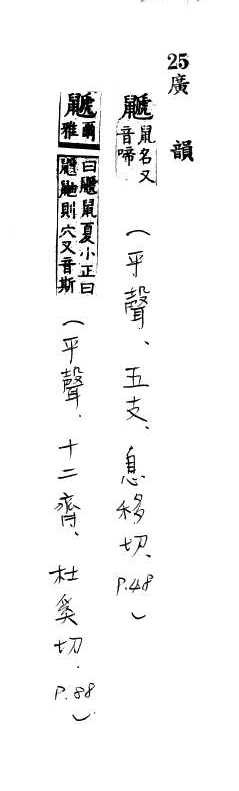 25廣韻
鼶鼠名又音啼（平聲、五支、息移切、P.48）
鼶爾雅曰鼶鼠夏小正曰鼶鼬則穴又音斯（平聲．十二齊、杜奚切．P.88）